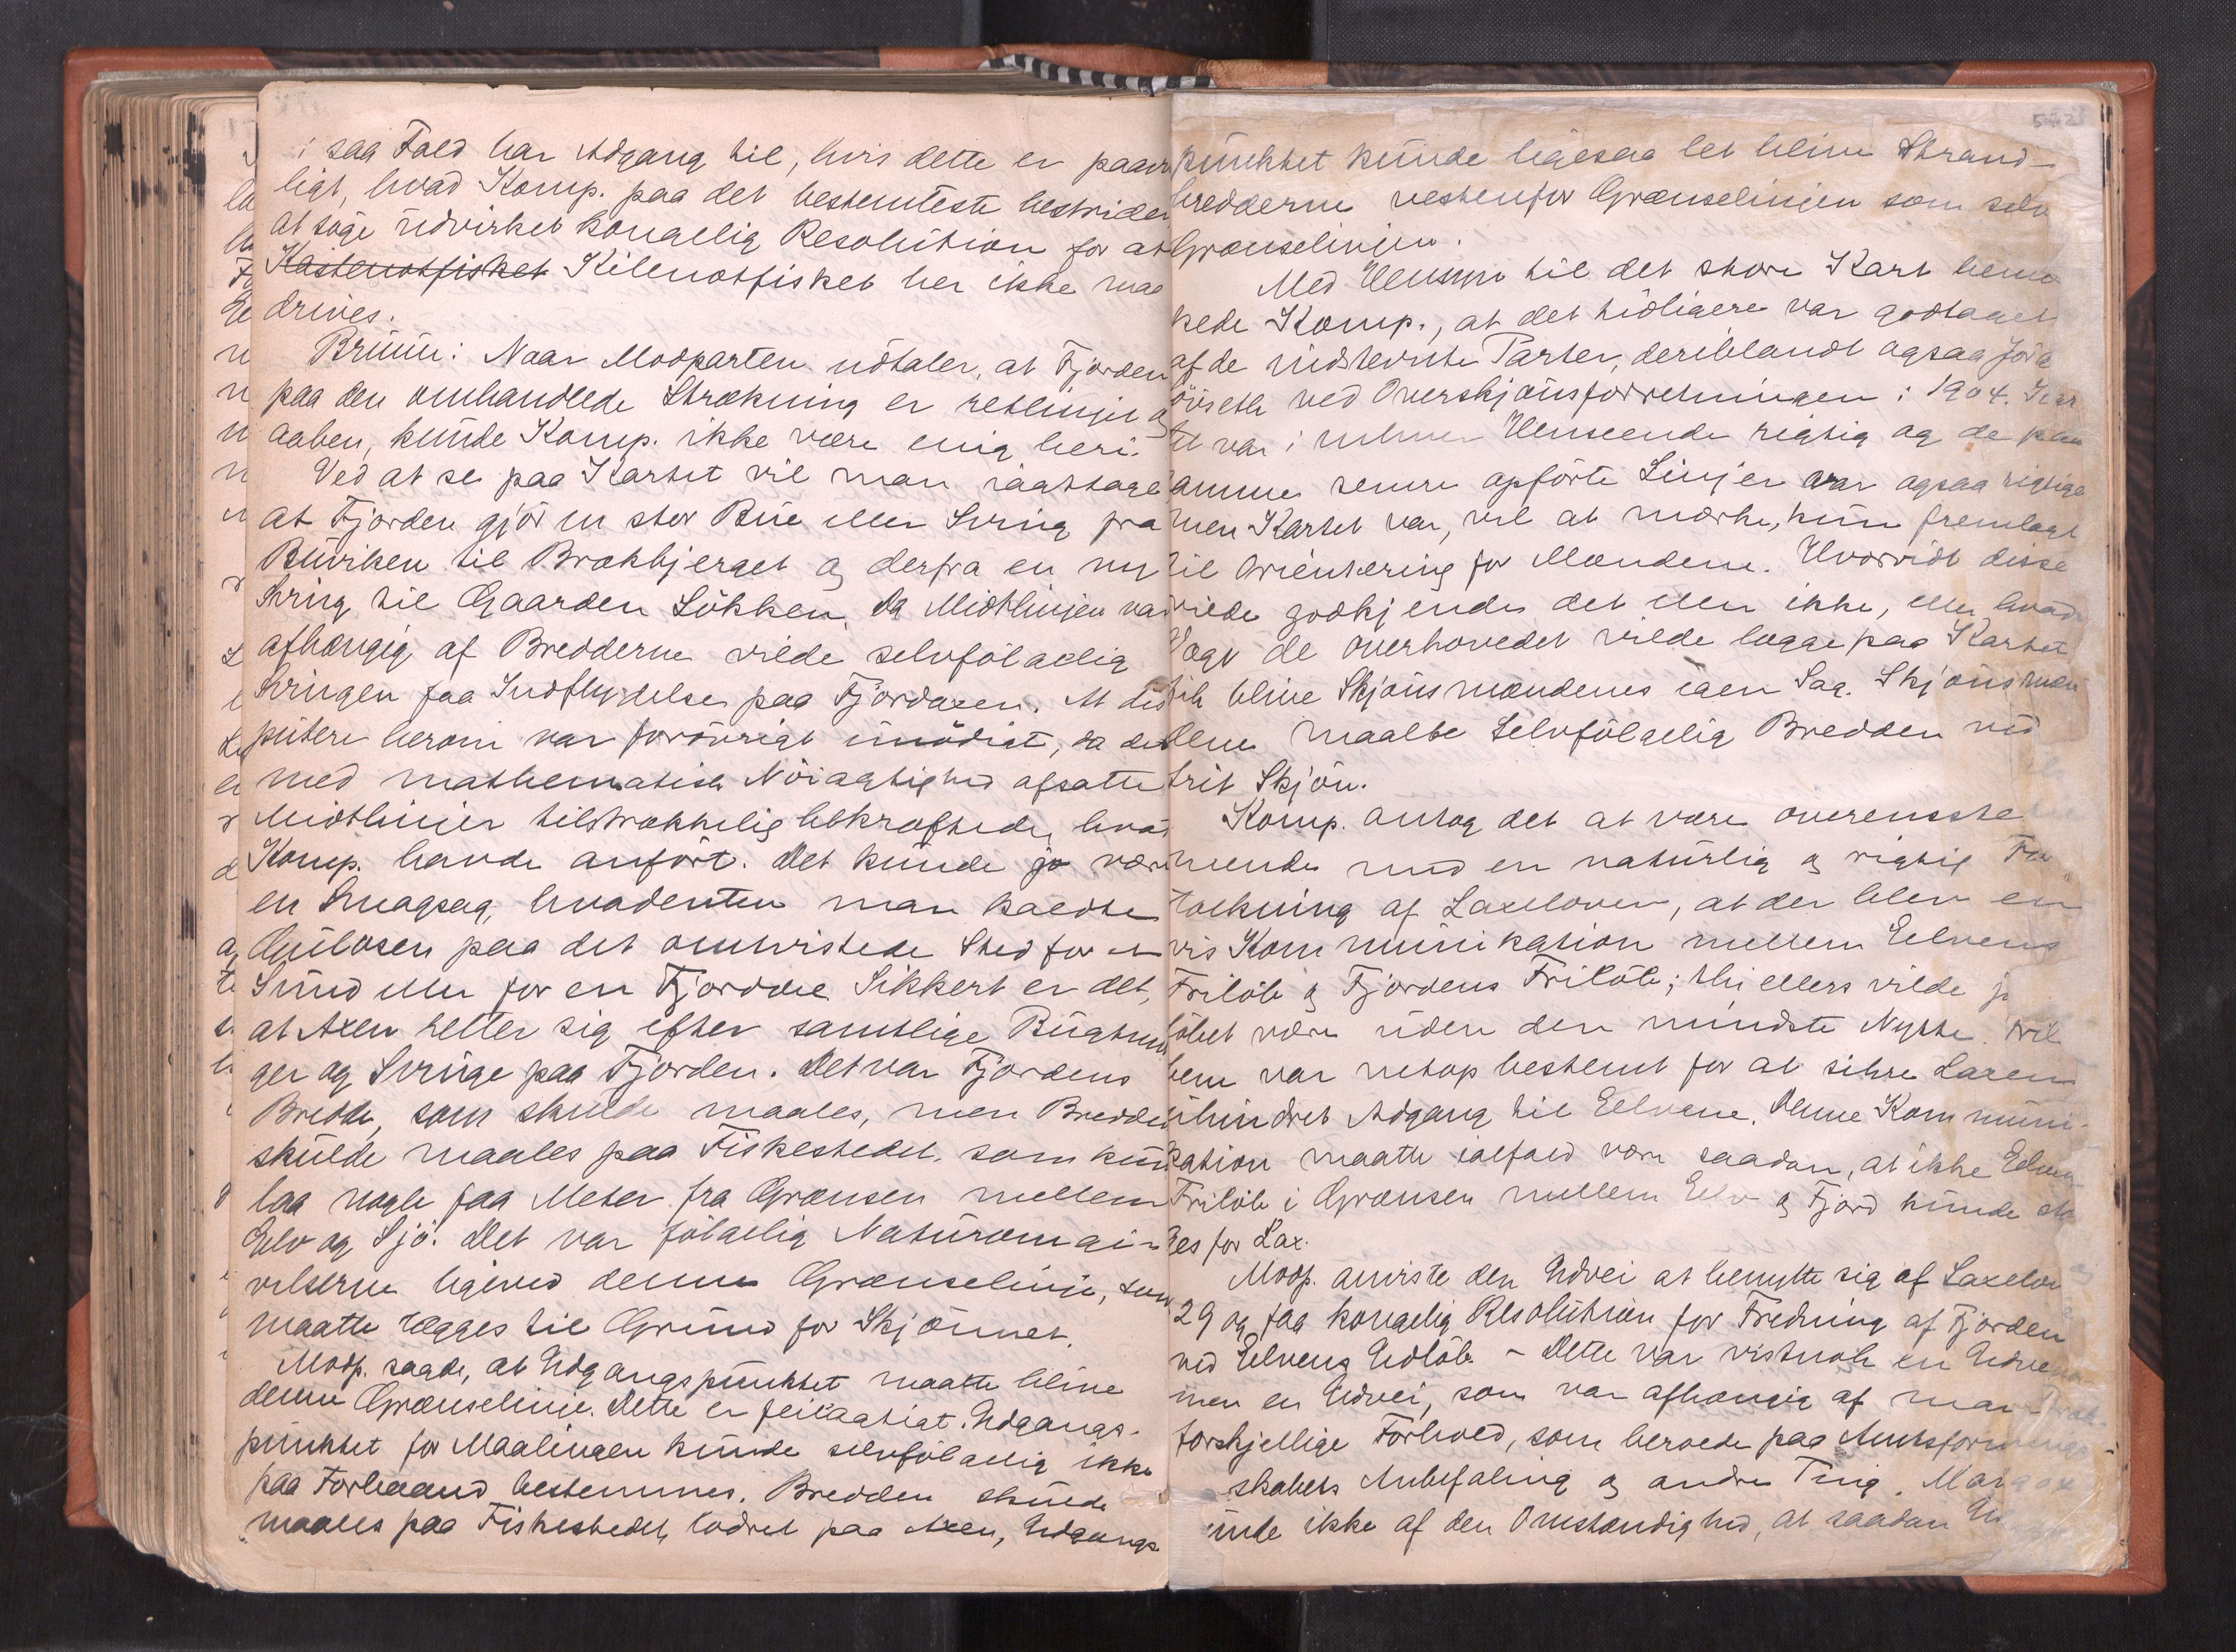 i saa Fald har Adgang til, hvis dette er paa
ligt, hvad Komp. paa det bestemteste bestrider
at söge udvirket kongelig Resolution for at
Kastenotfisket Kilenotfisket her ikke maa
drives.
Bruun: Naar Modparten udtaler, at Fjorden
paa den omhandlede Strækning er retlinjet og
aaben, kunde Komp. ikke være enig heri.
Ved at se paa Kartet vil man iagttage
at Fjorden gjör en stor Bue eller Sving fra
Buviken til Brækbjerget og derfra en ny
Sving til Gaarden Lökken. Da Midtlinjen var
afhængig af Bredderne vilde selvfölgelig
Svingen faa Indflydelse paa Fjordaxen. At dis
putere herom var forövrigt unödigt, da det
med mathematisk Nöiagtighed afsatte
Midtlinier tilstrækkelig bekræftede, hvad
Komp. havde anfört. Det kunde jo være
en Smagsag, hvadenten man kaldte
Gulosen paa det omtvistede Sted for et
Sund eller for en Fjord. Sikkert er det,
at Axen retter sig efter samtlige Bugtnin
ger og Svinge paa Fjorden. Det var Fjordens
Bredde, som skulde maales, men Bredden
skulde maales paa Fiskestedet, som kun
laa nogle faa Meter fra Grænsen mellem
Elv og Sjö. Det var fölgelig Naturomgi-
velserne ligeved denne Grænselinje, som
maatte lægges til Grund for Skjönnet.
Modp. sagde, at Udgangspunktet maatte blive
denne Grænselinie. Dette er feilagtigt. Udgangs-
punktet for Maalingen kunde selvfölgelig ikke
paa Forhaand bestemmes. Bredden skulde
maales paa Fiskestedet, lodret paa Axen, Udgangs
punktet kunde ligesaa let blive Strand-
bredderne vestenfor Grænselinjen som selv
Grænselinjen.
Med Hensyn til det store Kart bemær
kede Komp., at det tidligere var godtaget
af de indstevnte Parter, deriblandt ogsaa
ved Overskjönsforretningen i 1904. Kar
tet var i enhver Henseende rigtig og de paa
samme senere opförte Linjer var ogsaa rigtige
men Kartet var, vel at mærke, kun fremlagt
til Orientering for Mændene. Hvorvidt disse
vilde godkjende det eller ikke, eller hvad
Vægt de overhovedet vilde lægge paa Kartet
fik blive Skjönsmændenes egen Sag. Skjönsmæn
dene maalte selvfölgelig Bredden ved
frit Skjön.
Komp. antog det at være overensste
mende med en naturlig og rigtig For
tolkning af Laxeloven, at der blev en
vis Kommunikation mellem Elvens
Frilöb og Fjordens Frilöb; thi ellers vilde
löbet være uden den mindste Nytte. Fril
bene var netop bestemt for at sikre Laxen
uhindret Adgang til Elvene. Denne Kommuni-
kation maatte ialfald være saadan, at ikke Elvens
Frilöb i Grænsen mellem Elv og Fjord kunde
ges for Lax.
Modp. anviste den Udvei at benytte sig af Laxelov
29 og faa kongelig Resolution for Fredning af Fjorden
ved Elvens Udlöb. - Dette var vistnok en Udvei
men en Udvei, som var afhængig af
forskjellige Forhold, som beroede paa Amtsformand
skabets Anbefaling og andre Ting.
ikke af den Omstændighed, at saadan